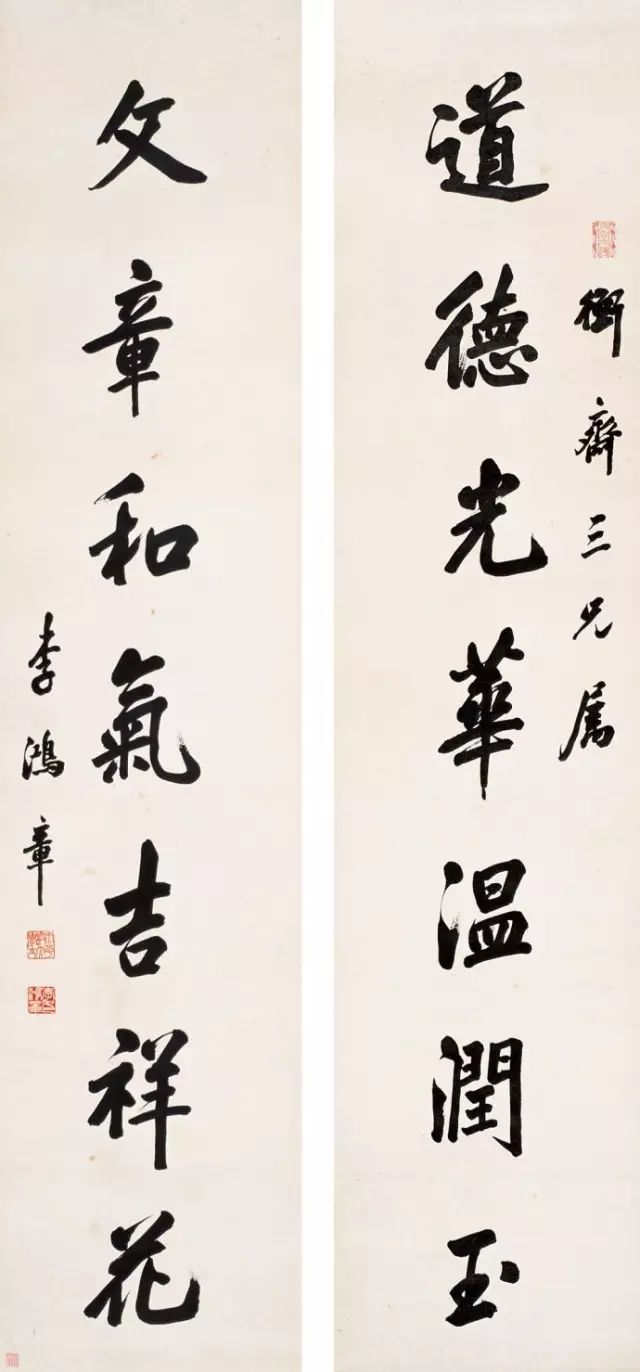 衡齋三兄属
道德光華温潤玉
文章和氣吉祥花
李鴻章